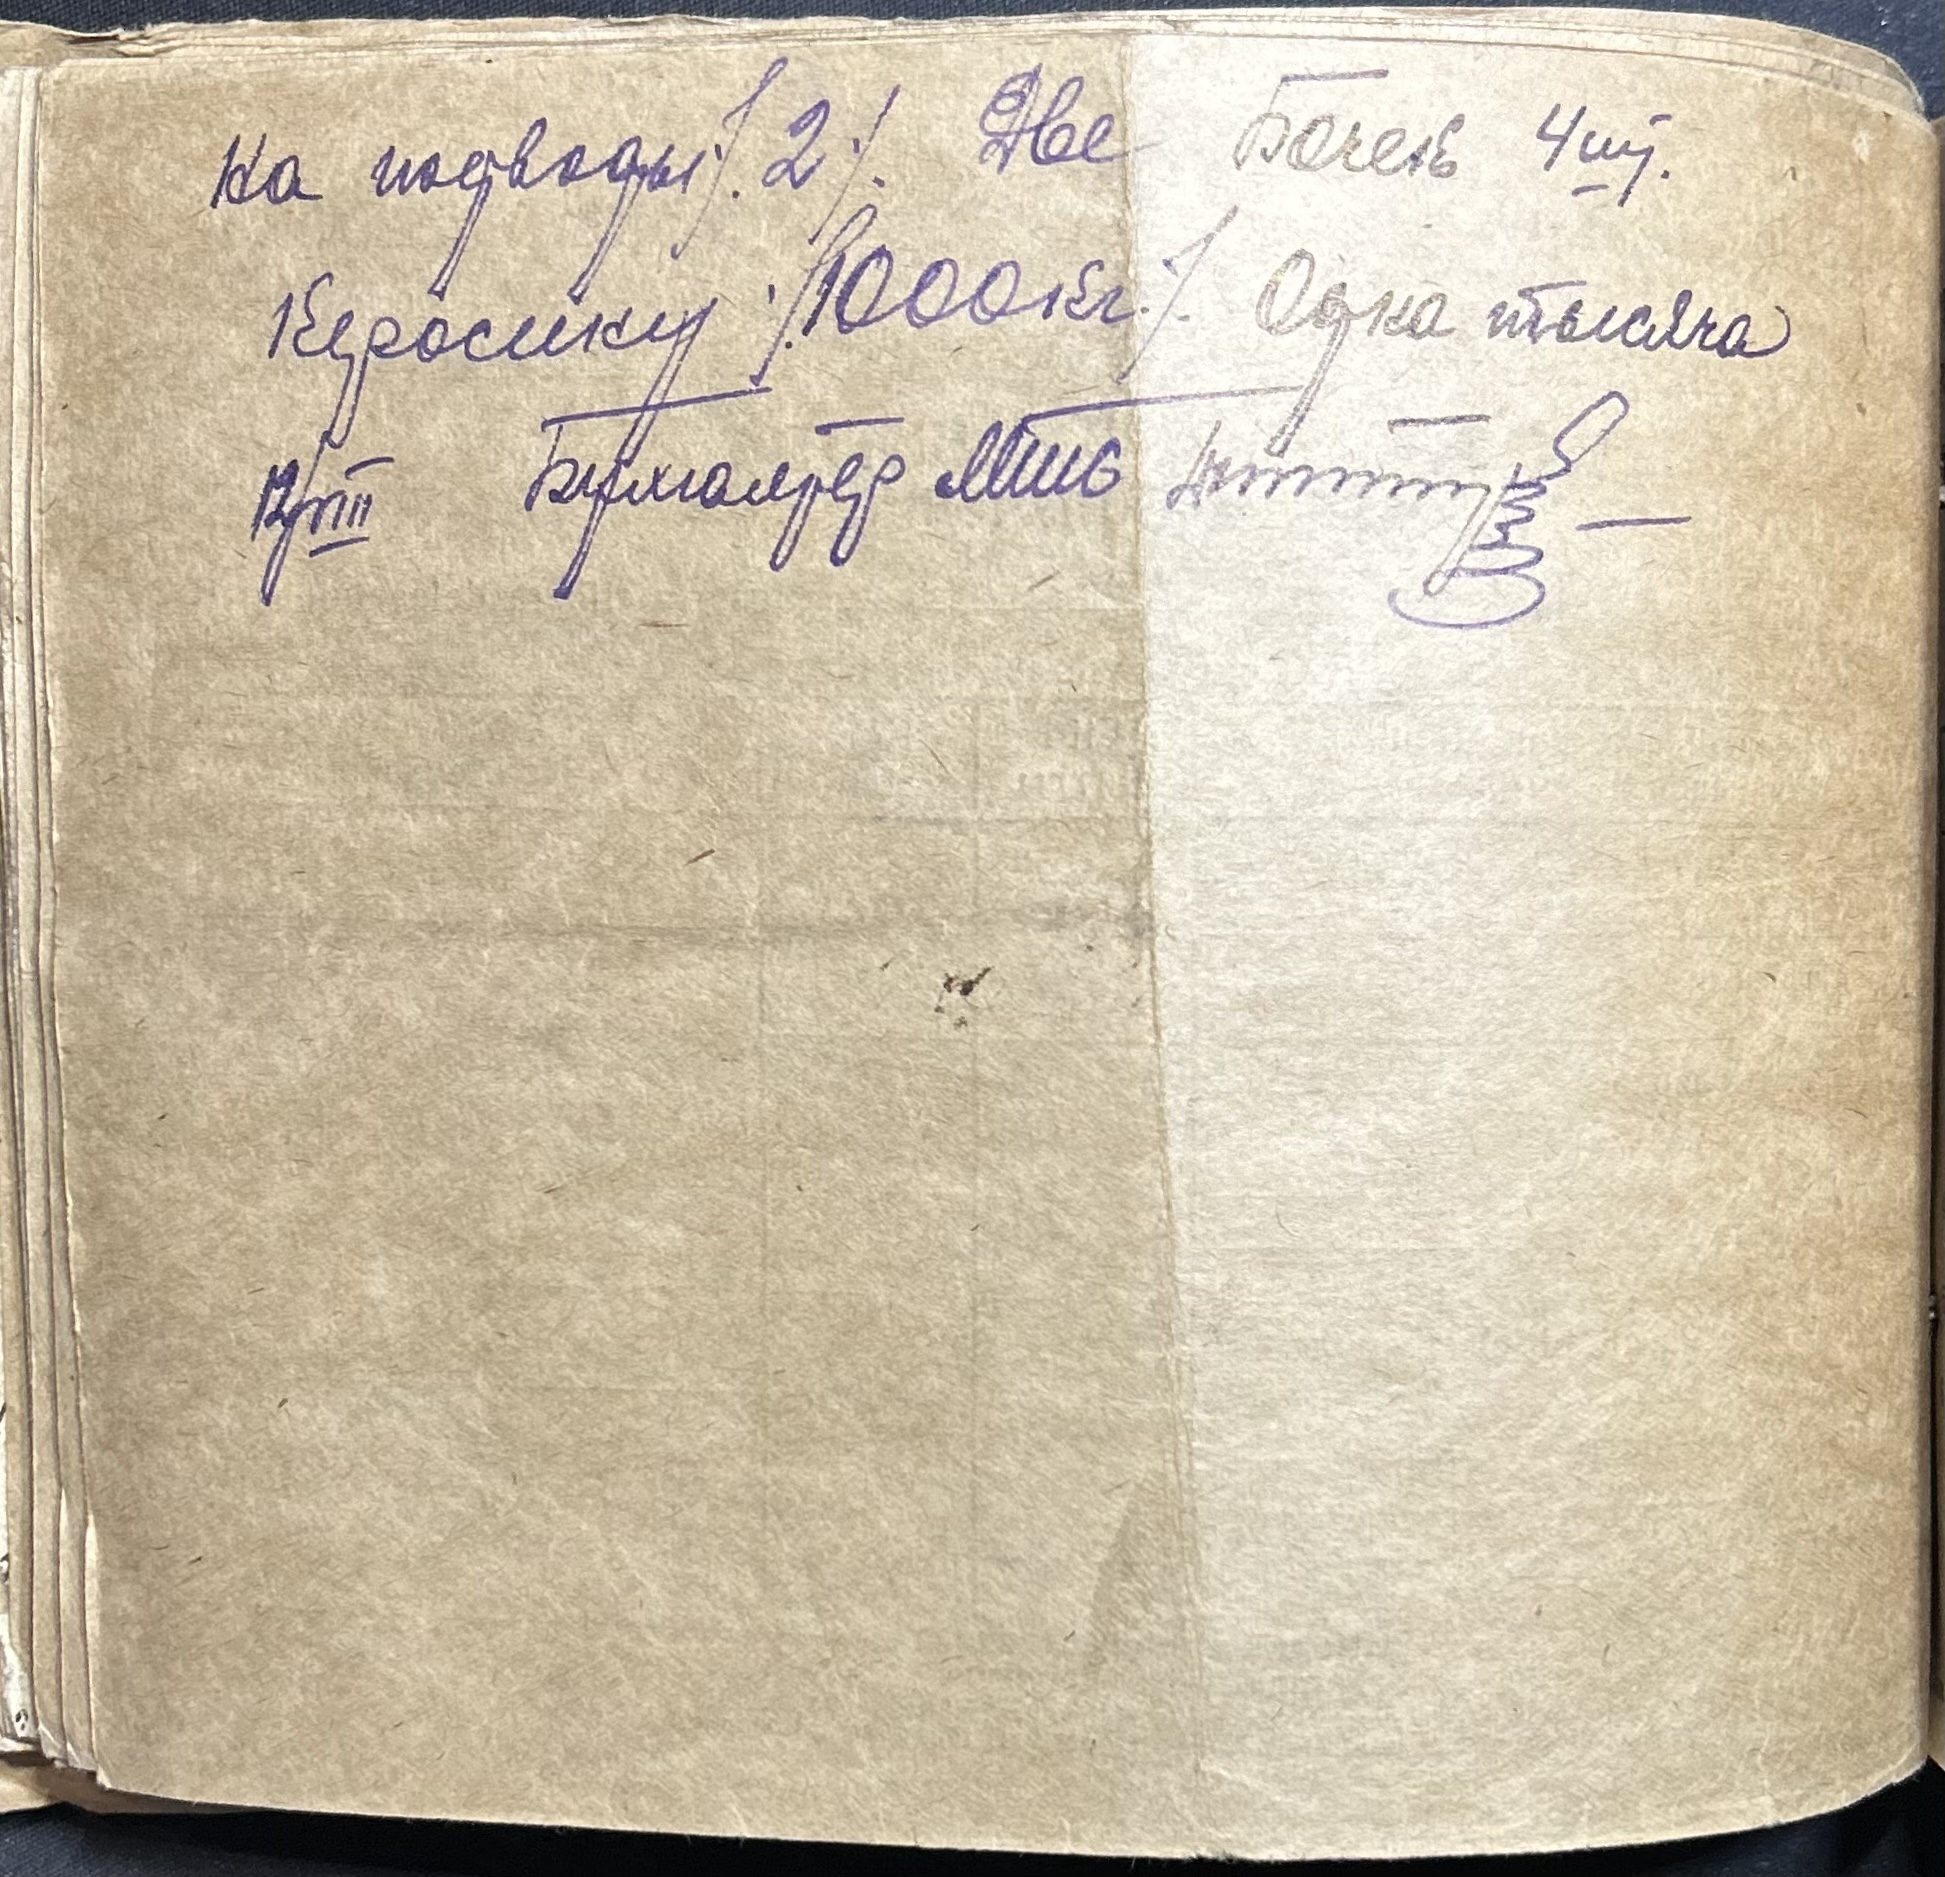 На подводы ./. 2 ./. Две Бочек 4 шт.
Керосину ./. 1000 кг. ./. Одна тысяча
Бухгалтер МТС